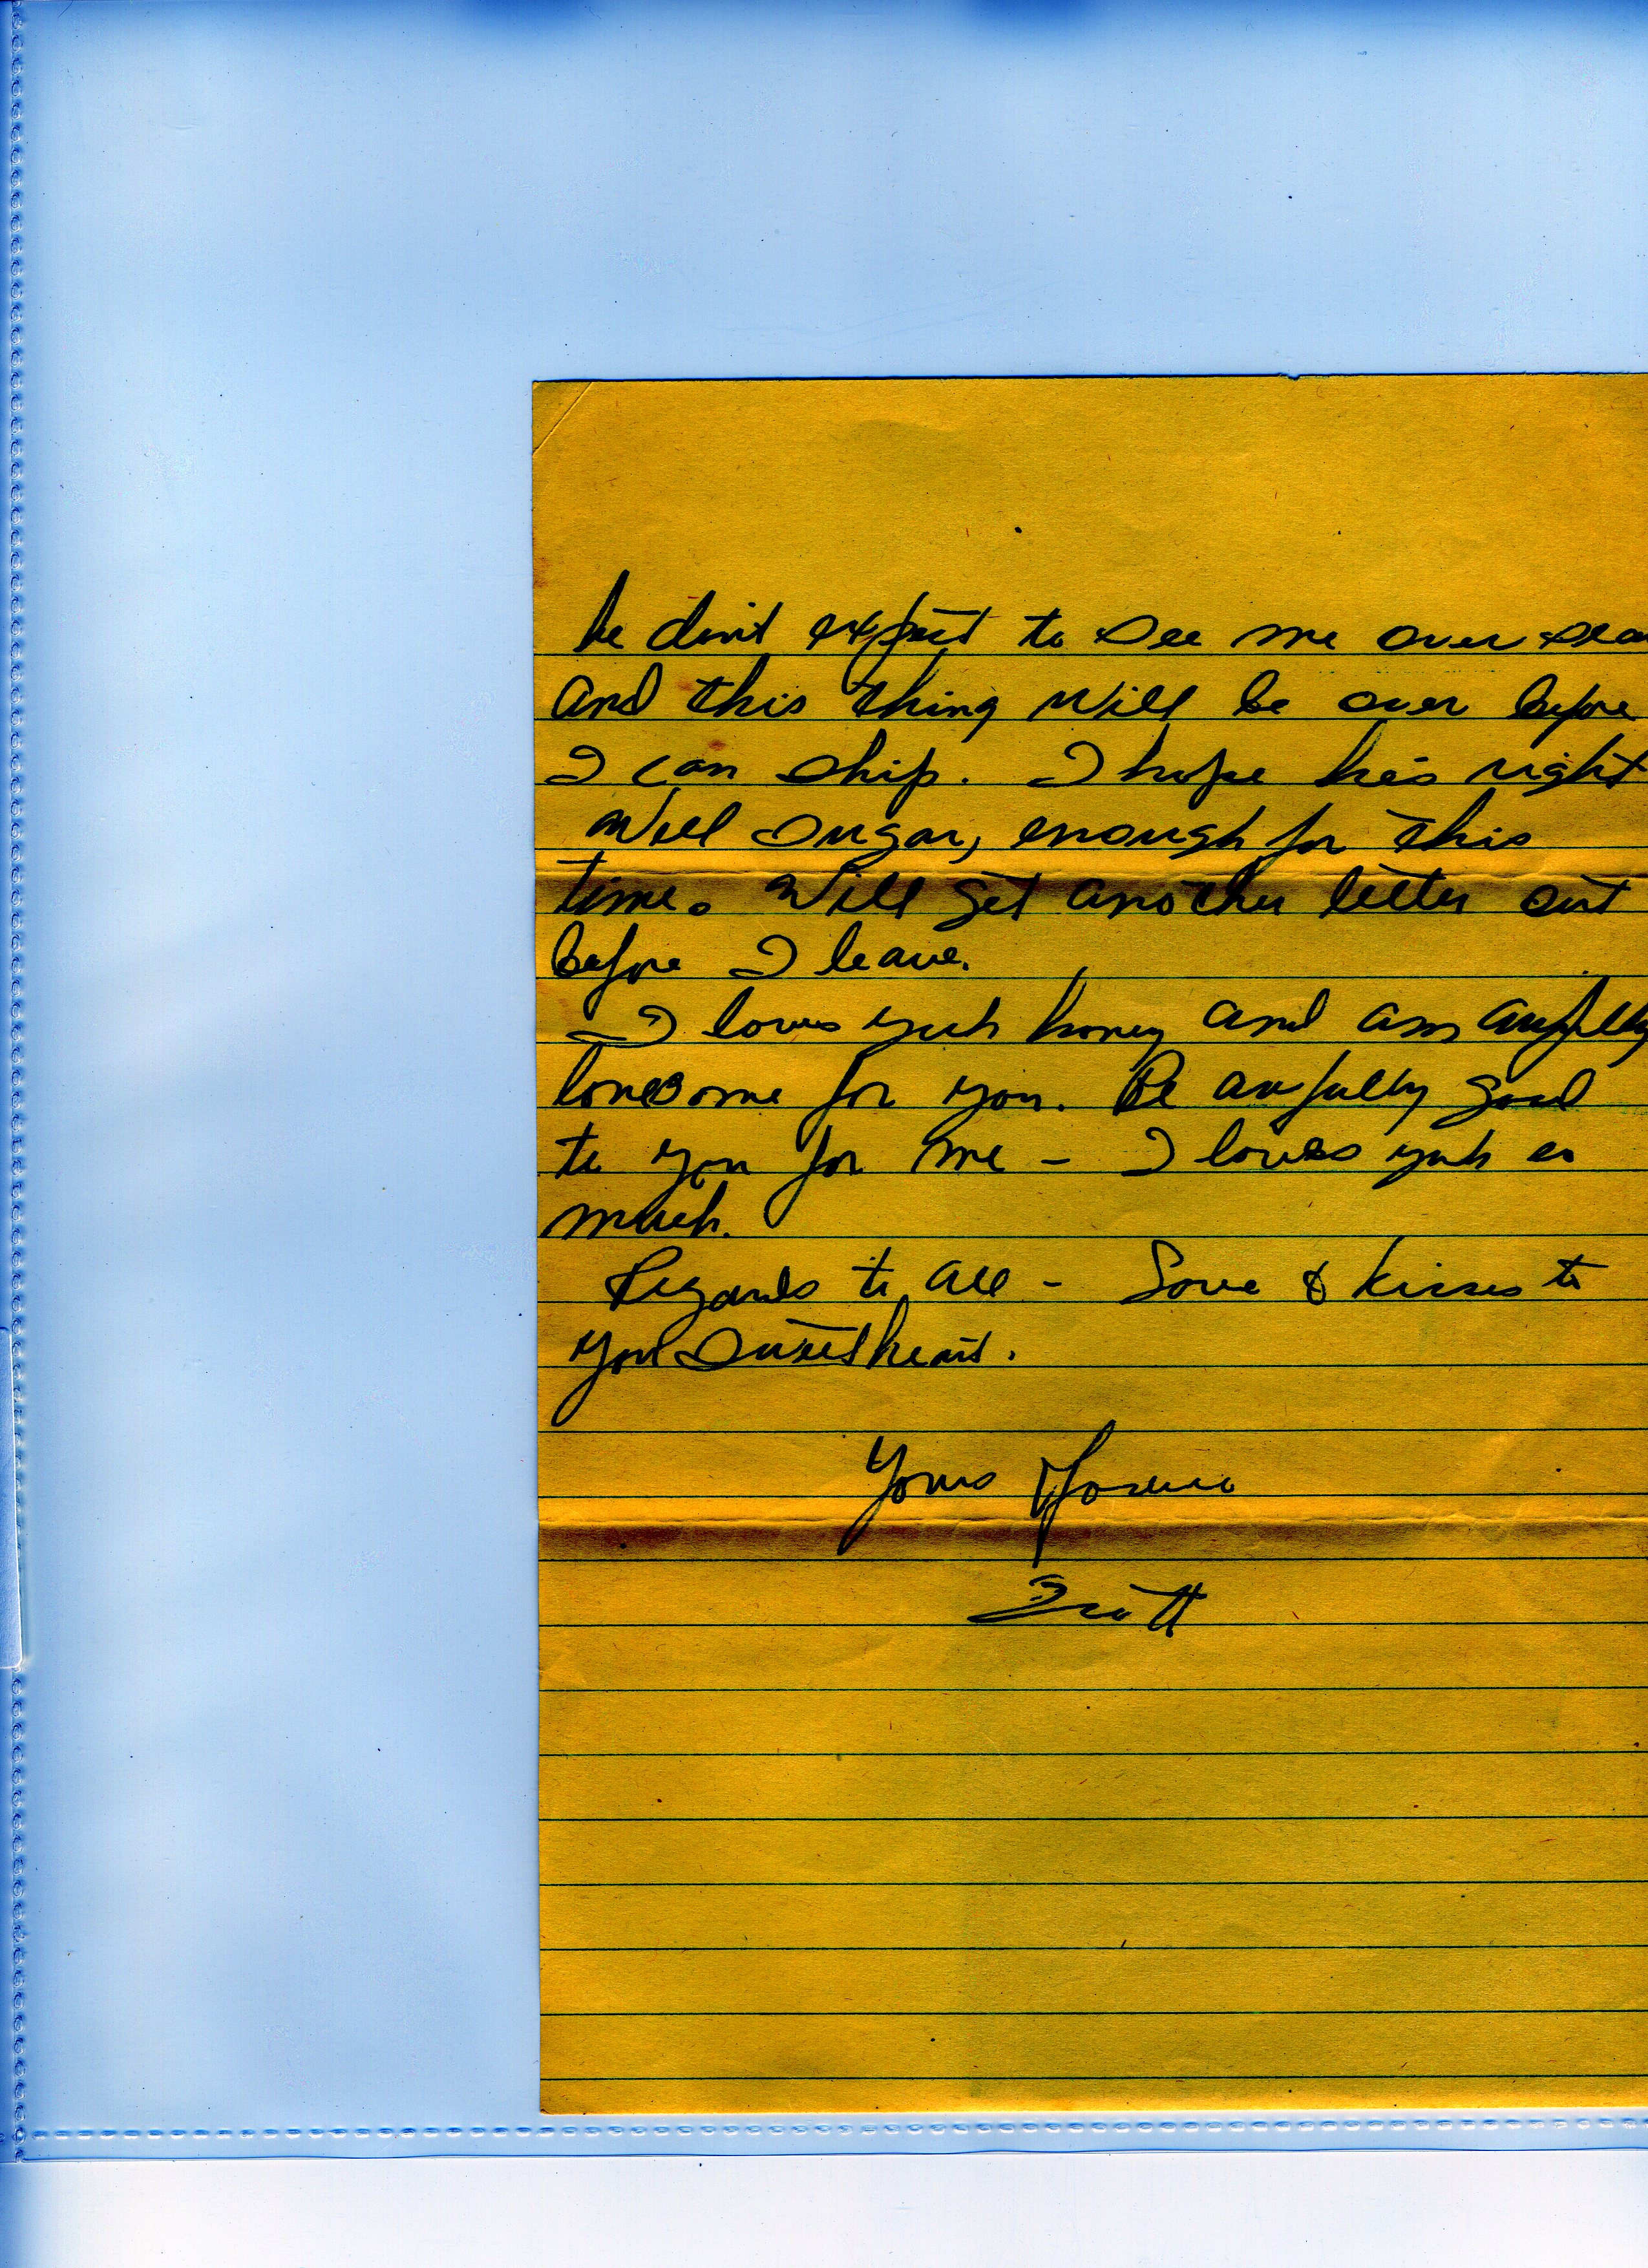 he don't expect to see me over seas
and this thing will be over before
I can ship. I hope he's right
Well Sugar, enough for this
time. Will get another letter out
before I leave.
I loves yuh honey and am awfully
lonesome for you. Be awfully good
to you for me - I loves yuh so
much.
Regards to all - Love & kisses to
you Sweetheart.
Yours Forever
Scott